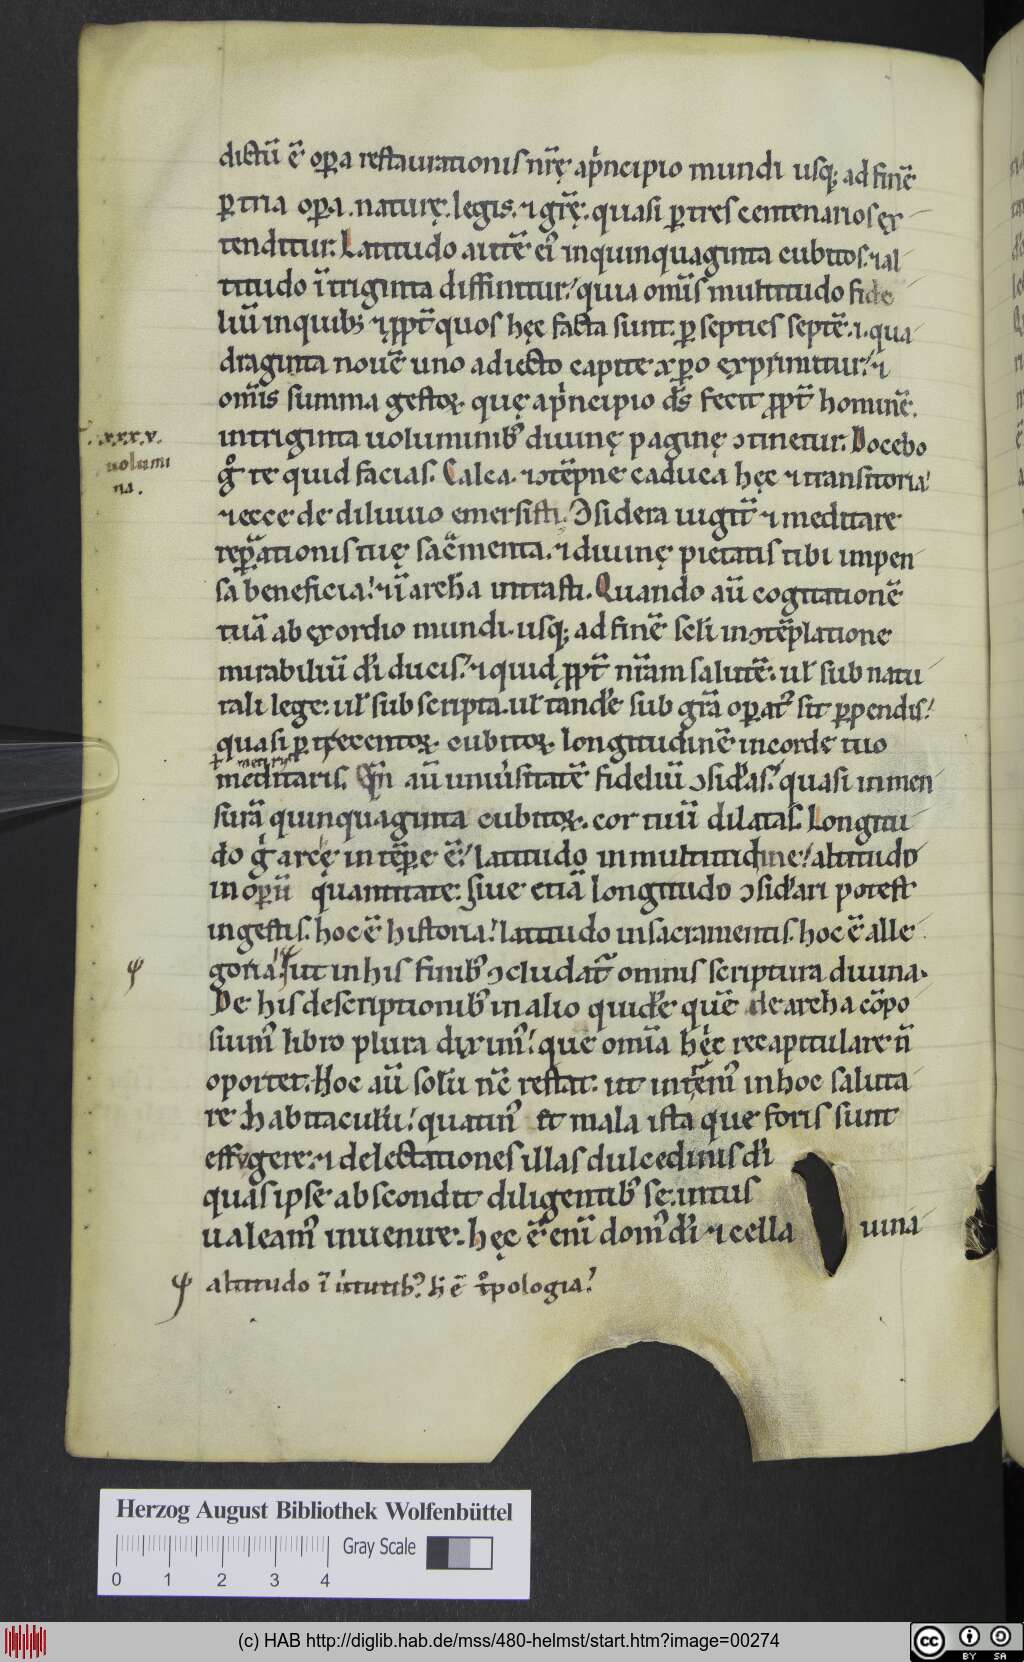 dictū ē oꝑa restaurationis nr̄ę ap̍ncipio mundi usq; ad finē
ꝑ tria oꝑa. naturę. legis. ⁊ gr̄ę. quasi ꝑ tres centenarios ex
tenditur. Latitudo autē ei᷒ in quinquaginta cubitos. ⁊ al
titudo ī triginta diffinitur. quia om̄is multitudo fide
liū in quib; ⁊ ꝓpt̄ quos hęc facta sunt. ꝑ septies septē. i. qua
draginta nouē uno adiecto capite xp̄o exprimitur. ⁊
om̄is summa gestoꝝ quę ap̍ncipio dš fecit ꝓpt̄ hominē.
in triginta uoluminib᷒ diuinę paginę ↄtinetur. Docebo
.xxx.v.
uolumi
na.
gͦ te quid facias. Calca. ⁊ ↄtēpne caduca hęc ⁊ transitoria.
⁊ ecce de diluuio emersisti. Ↄsidera iugit̄ ⁊ meditare
reꝑationis tuę sac̄menta. ⁊ diuinę pietatis tibi impen
sa beneficia. ⁊ ī archa intrasti. Quando aū cogitationē
tuā ab exordio mundi. usq; ad finē scłi in ↄtēplatione
mirabiliū dī ducis. ⁊ quid ꝓpt̄ nr̄am salutē. uł sub natu
rali lege. uł sub scripta. uł tandē sub gr̄a oꝑat᷒ sit ꝑpendis.
quasi ꝑ trecentoꝝ cubitoꝝ longitudinē in corde tuo
ł metiris
meditaris. Qn̄ aū uniu̍sitatē fideliū ↄsid̄as. quasi in men
surā quinquaginta cubitoꝝ. cor tuū dilatas. Longitu
do g̍ archę in tēꝑe ē. latitudo in multitudine. altitudo
in oꝑū quantitate. siue etiā longitudo ↄsid̄ari potest
in gestis. hoc ē historia. latitudo in sacramentis. hoc ē alle
ψ goria. ut in his finib᷒ ↄcludat᷑ omnis scriptura diuina.
De his descriptionib᷒ in alio quidē quē de archa cōpo
suim᷒ libro plura diximus᷒. que omīa hęc recapitulare n̄
oportet. Hoc aū solū nc̄ restat. ut intrem᷒ in hoc saluta
re habitaculū. quatin᷒ et mala ista que foris sunt
effugere. ⁊ delectationes illas dulcedinis dī
quas ipse abscondit diligentib᷒ se. intus
ualeam᷒ inuenire. hęc ē enī dom᷒ dī ⁊ cella uina
ψ altitudo ī u̍tutib᷒. h̄ ē tͦpologia.
Herzog August Bibliothek Wolfenbüttel
Gray Scale
0 1 2 3 4
(c) HAB http://diglib.hab.de/mss/480-helmst/start.htm?image=00274
cc BY SA